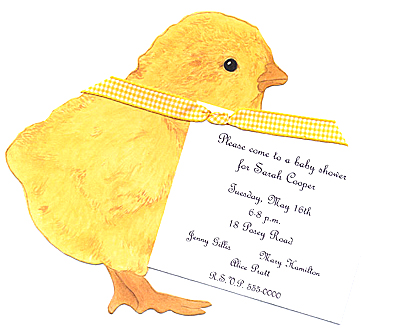 Please come to a baby shower
for Sarah Cooper
Tuesday, May 16th
6-8 p.m.
18 Posey Road
Jenny Gilles Mary Hamilton
Alice Pratt
R.S.V.P. 555-0000